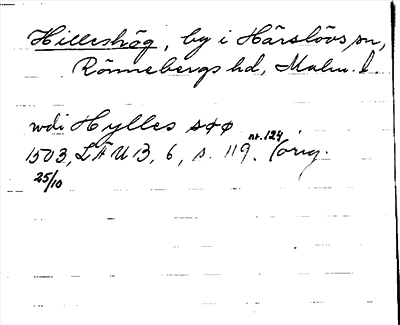 Hilleshög, by i Härslövs sn,
Rönnebergs hd, Malm. l.
wdi Hylles søø
1503, LÄUB, 6, s. 119. nr. 124 (orig.
25/10